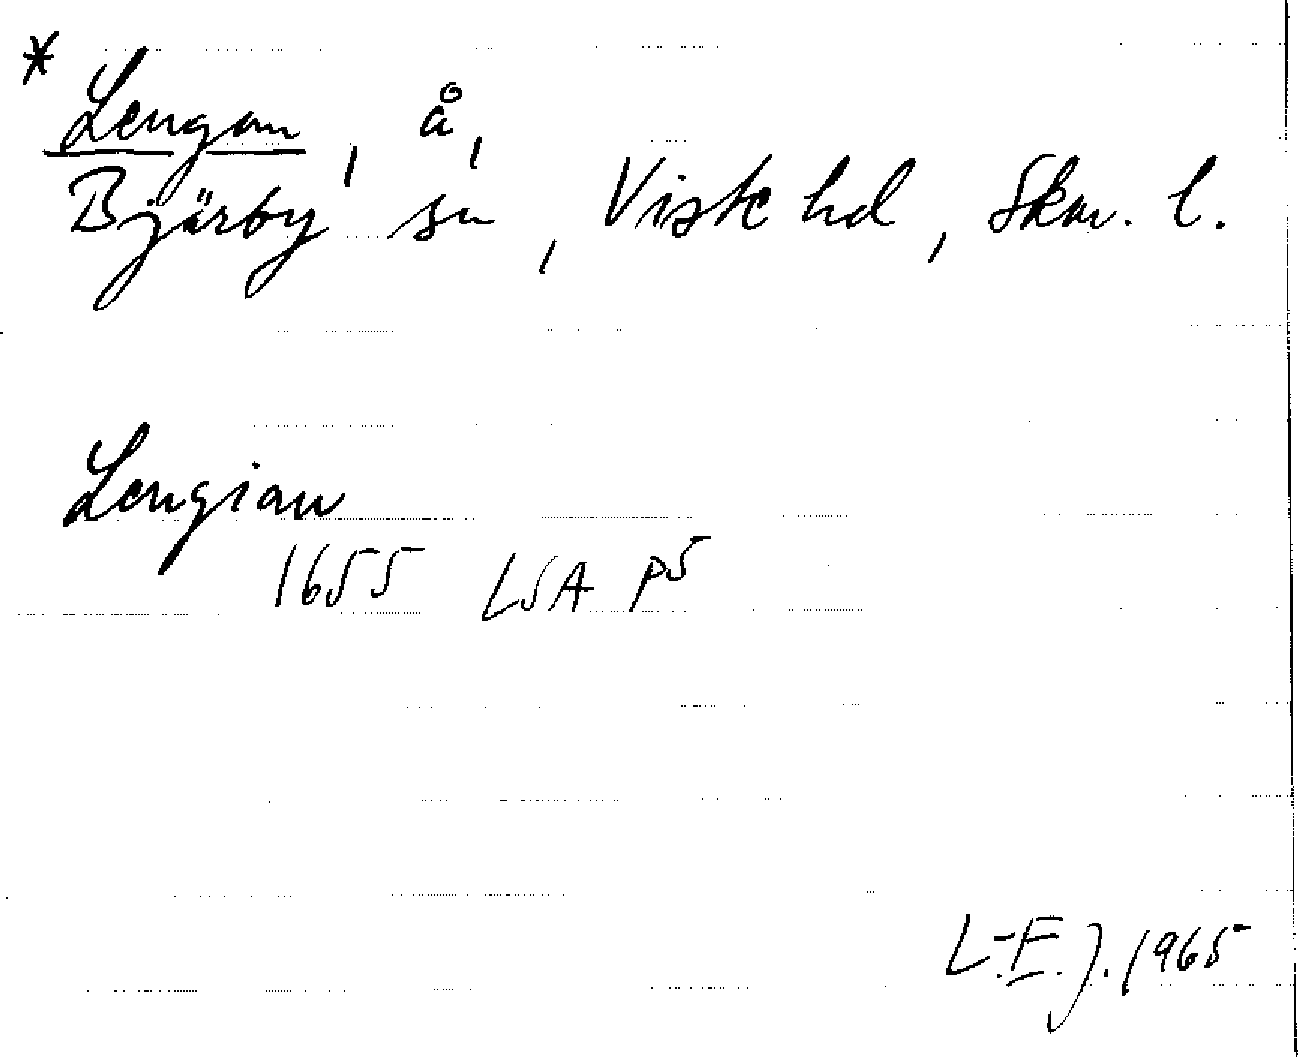 * Lengan, å,
Bjärby sn, Viste hd, Skar. l.
Lengian
1655 LSA p5
L-E. J. 1965